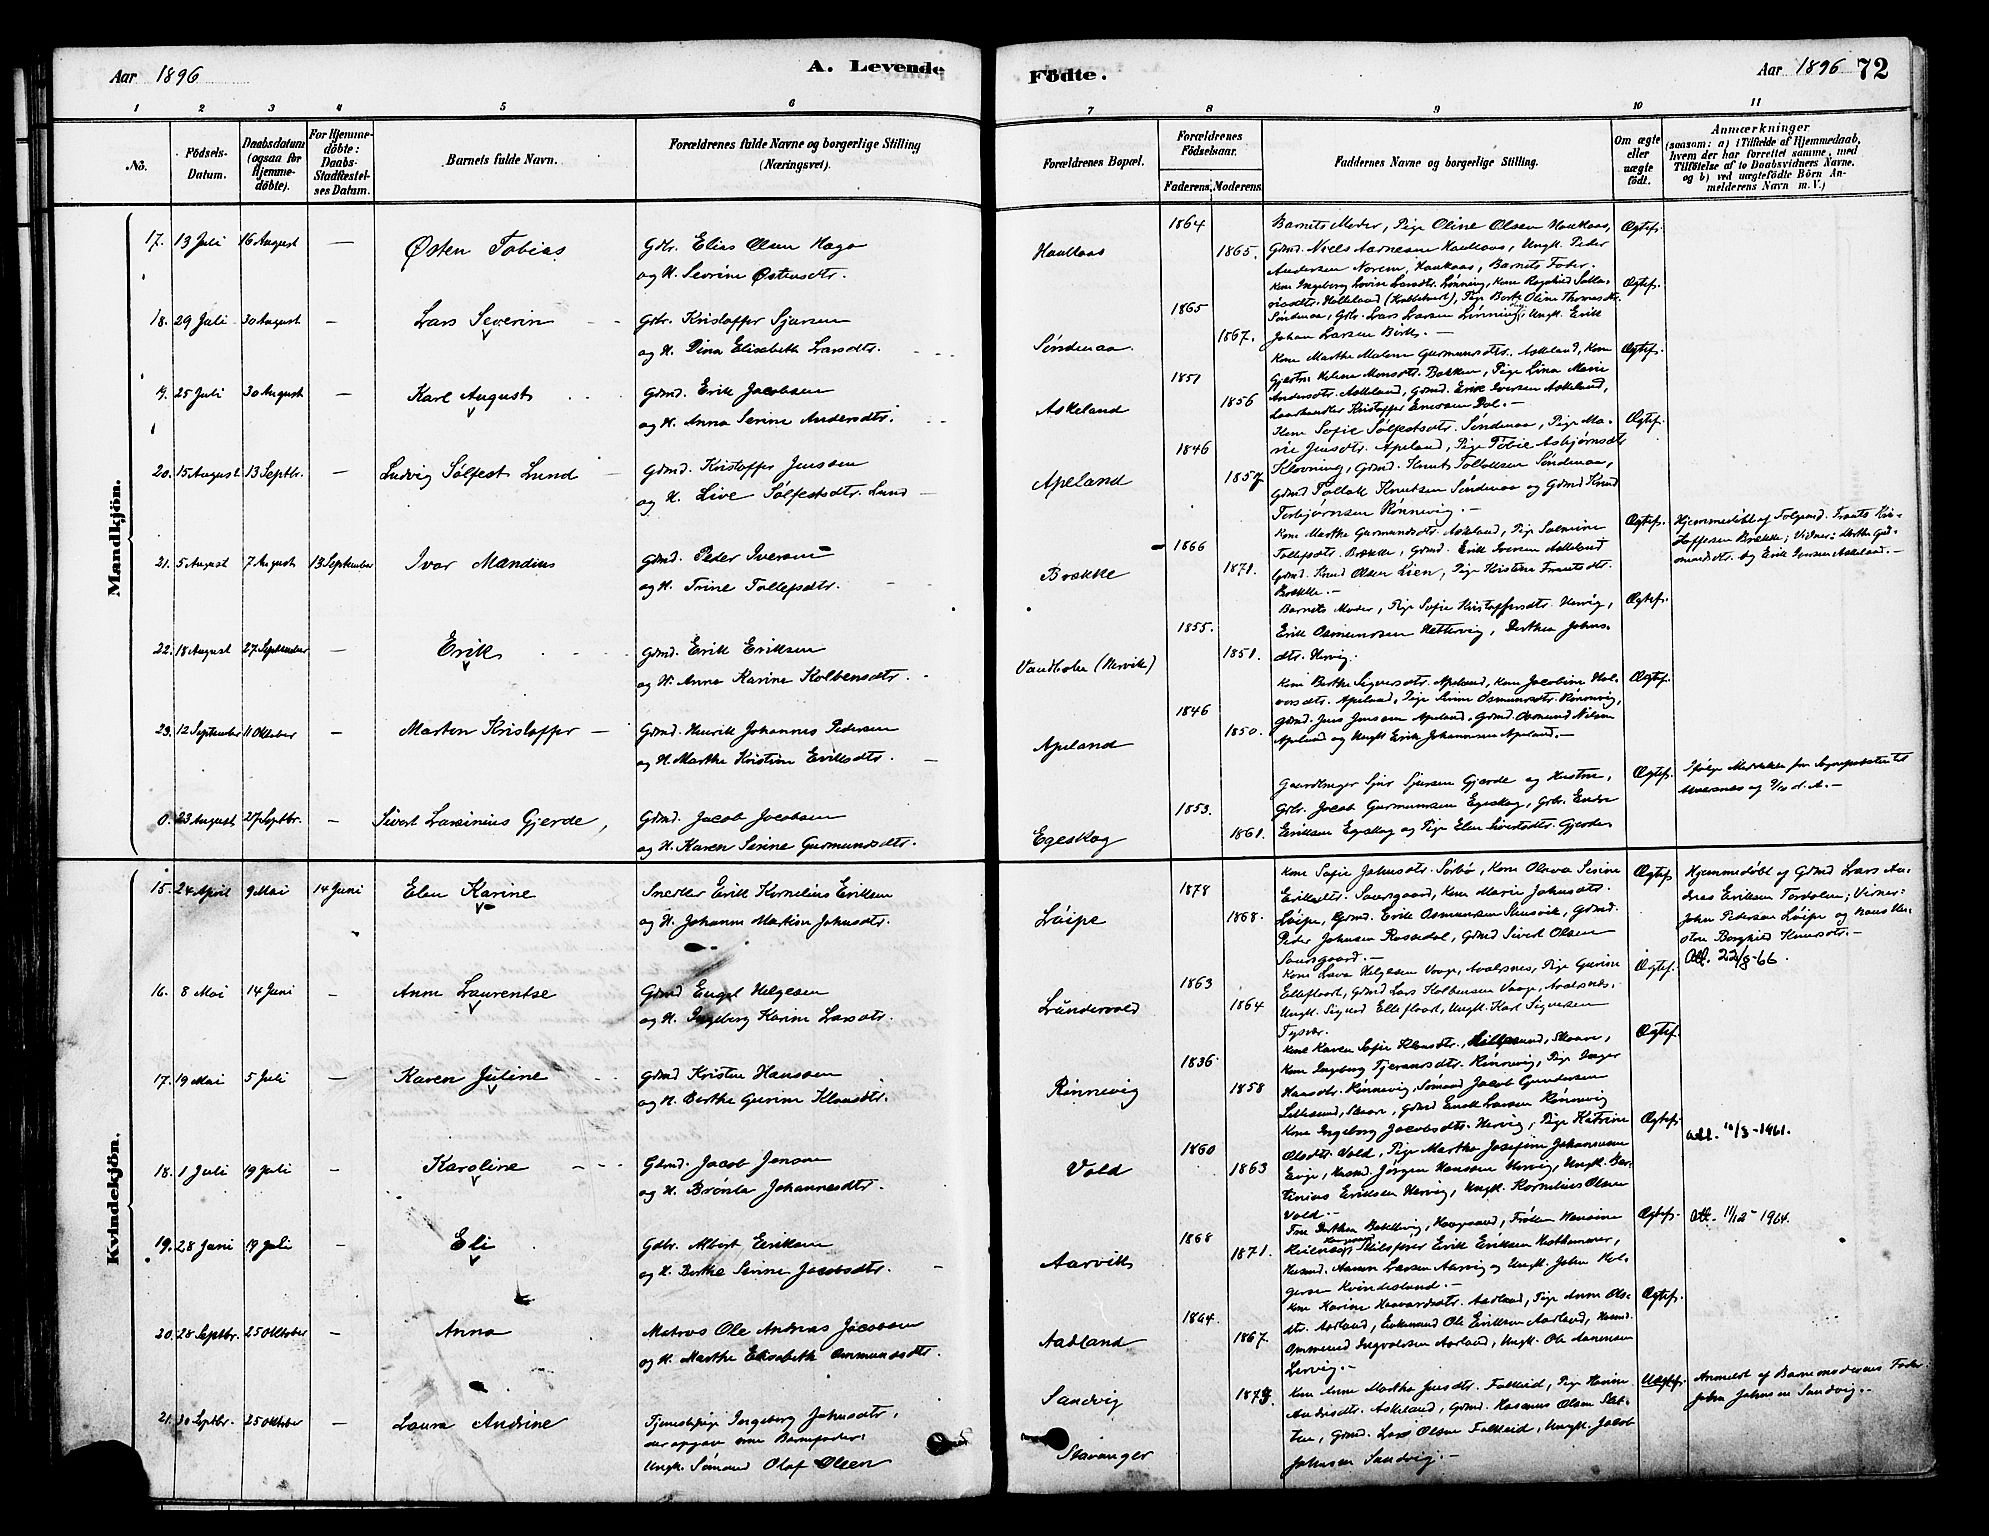 Aar 1896
A. Levende
Födte.
Aar 1896 72
1 2 3 4 5 6 7 8 9 10 11
No.
Födsels-
Datum.
Daabsdatum
(ogsaa for
Hjemme-
döbte).
For Hjemme-
döbte:
Daabs-
Stadfæstel-
ses Datum.
Barnets fulde Navn.
Forældrenes fulde Navne og borgerlige Stilling
(Næringsvei).
Forældrenes Bopæl.
Forældrenes
Födselsaar.
Faderens. Moderens.
Faddernes Navne og borgerlige Stilling.
Om ægte
eller
uægte
födt.
Anmærkninger
(saasom: a) i Tilfælde af Hjemmedaab,
hvem der har forrettet samme, med
Tilföielse af to Daabsvidners Navne,
og b) ved uægtefödte Börn An-
melderens Navn m. V.)
Mandkjön.
17. 13 Juli 16 August — Østen Tobias
Gbr. Elias Olsen Haga
og H. Sevrine Østensdtr.
Haukaas 1864 1865.
Barnets Moder, Pige Oline Olsen Haukaas,
Gdmd. Noels Aarnesen Haukaas, Ungk. Peder
Andersen Norem, Haukaas, Barnets Fader.
Ægtef.
18. 29 Juli 30 August — Lars Severin
Gbr. Kristoffer Sjursen
og H. Dina Elisabeth Larsdtr.
Søndenaa 1865 1867.
Søndenaa, Gbr. Lars Larsen Lønning, Ungk. Erik
Johan Larsen Birk. —
Ægtef.
19. 25 Juli 30 August — Karl August
Gdmd. Erik Jacobsen
og H. Anna Serine Andersdtr.
Askeland 1851 1856
Kone Marthe Malene Gurmunsdtr. Askeland, Kone
Helene Monsdtr. Bakken, Pige Lina Marie
Andersdtr. Askeland, Gdmd. Erik Iversen Askeland,
Kristoffer Enersen Dal. —
Ægtef.
20. 15 August 13 Septbr. — Ludvig Solfest Lund
Gdmd. Kristoffer Jensen
og H. Live Solfestsdtr. Lund
Apeland 1846 1857
Kone Sofie Solfestsdtr. Søndenaa, Pige Ma-
rie Jensdtr. Apeland, Pige Tobie Asbjørnsdtr.
Klovning, Gdmd. Knut Tollaksen Søndenaa,
Gdmd. Tollak Knutsen Søndenaa og Gdmd. Knud
Torbjørnsen Rønnevig. —
Ægtef.
21. 5 August 7 August 13 September Ivar Mandius
Gdmd. Peder Iversen
og H. Trine Tollefsdtr.
Brække 1866 1871.
Kone Marthe Gurmundsdtr. Askeland, Pige Salmine
Tollefsdtr. Brække, Gdmd. Erik Iversen Askeland
Gdmd. Knud Olsen Lien, Pige Kristine Frantsdtr.
Brække. —
Ægtef.
Hjemmedøbt af Frants Kri-
stoffersen Brække; Vidner: Marthe Gud-
mundsdtr. og Erik Iversen Askeland. —
22. 18 August 27 September — Erik
Gdmd. Erik Eriksen
og H. Anna Karine Kolbensdtr.
Vandholm (Hervik) 1855. 1851.
Barnets Moder, Pige Sofie Kristoffersdtr. Hervig,
Erik Osmundsen Hettervig, Berthea Johns-
dtr. Hervig.
Ægtef.
23. 12 September 11 Oktober — Marten Kristoffer
Gdmd. Henrik Johannes Pedersen
og H. Marthe Kristine Eriksdtr.
Apeland 1846 1850.
Kone Berthe Sigversdtr. Apeland, Kone Jacobine Hal-
vorsdtr. Apeland, Pige Osmundsdtr. Rønnevig,
Gdmd. Jens Jensen Apeland, Gdmd. Osmund Nilsen
Apeland og Ungk. Erik Johannesen Apeland. —
Ægtef.
0. 23 August 27 Septbr. — Sivert Larsinius Gjerde,
Gdmd. Jacob Jacobsen
og H. Karen Serine Gurmundsdtr.
Egeskog 1853. 1861.
Gaardbruger Sjur Sjursen Gjerde og Hustru,
Gbr. Jacob Gurmundsen Egeskog, Gbr. Endre
Eriksen Egeskog og Pige Elen Sivertsdtr. Gjerde
Ægtef.
Ifølge Meddelelse fra Sogneprestens til
Avaldsnes og
Kvindekjön.
15. 24 April 9 Mai 14 Juni Elen Karine
Snedker Erik Kornelius Eriksen
og H. Johanne Martine Johnsdtr.
Løipe 1878 1868.
Kone Sofie Johnsdtr. Sørbø, Kone Olava Serine
Eriksdtr. Saursgaard, Kone Marie Johnsdtr.
Løipe, Gdmd. Erik Osmundsen Stensvik, Gdmd.
Peder Johnsen Rossedal, Gdmd. Sivert Olsen
Saursgaard. —
Ægtef.
Hjemmedøbt af Gdmd. Lars An-
dreas Eriksen Tordalen; Vidner:
John Pedersen Løipe og
Borghild Knudsdtr. —
Att. 22/8-66.
16. 8 Mai 14 Juni — Anne Laurentse
Gdmd. Engel Helgesen
og H. Ingeborg Karine Larsdtr.
Lundervold 1863 1864
Kone Lava Helgesen Vaage, Avaldsnes, Pige Gurine
Elleflaat, Gdmd. Lars Kolbensen Vaage, Avaldsnes,
Ungk. Sigurd Elleflaat, Ungk. Karl Sigversen
Tysvær.
Ægtef.
17. 19 Mai 5 Juli — Karen Juline
Gdmd. Kristen Hanssen
og H. Berthe Gurine Klausdtr.
Rønnevig 1836 1858
Kone Karen Sofie Klausdtr. Lillesund, Skaare,
Kone Ingeborg Tjeransdtr. Rønnevig, Pige Inger
Hansdtr. Rønnevig, Sømand Jacob Gundersen
Lillesund, Skaare, Gdmd. Enok Larsen Rønnevig
Ægtef.
18. 1 Juli 19 Juli — Karoline
Gdmd. Jacob Jensen
og H. Brønla Johannesdtr.
Vold 1860 1863
Kone Ingeborg Jacobsdtr. Hervig, Pige Katrine
Olsdtr. Vold, Pige Marthe Josefine Johannesen
Eige, Husmd. Jørgen Hanssen Hervig, Ungk. Bar-
tinius Eriksen Hervig, Ungk. Kornelius Olsen
Vold. —
Ægtef.
Att. 11/3-1961.
19. 28 Juni 19 Juli — Eli
Gdbr. Albert Eriksen
og H. Berthe Serine Jacobsdtr.
Aarvik 1868 1871.
Erik Eriksen
Husmd. Aanen Larsen Aarvig og Ungk. John Hol-
gersen Kvindesland. —
Ægtef.
Att. 11/12-1964.
20. 28 Septbr. 25 Oktober — Anna
Matros Ole Andreas Jacobsen
og H. Marthe Elisabeth Ommundsdtr.
Aadland 1864. 1867.
Kone Karine Haavardsdtr. Aadland, Pige Anne Ols-
dtr. Aarland, Enkemand Ole Eriksen Aarland, Husmd.
Ommund Ingvaldsen Aarland, Ungk. Ole Aanensen
Lervig. —
Ægtef.
21. 30 Septbr. 25 Oktober — Laura Andrine
Tjenestepige Ingeborg Johnsdtr.,
der opgav som Barnefader:
Ungk. Sømand Olaf Olsen
Sandvig
Stavanger
1873.
Kone Anne Martha Jensdtr. Falkeid, Pige Hanine
Andersdtr. Askeland, Gdmd. Rasmus Olsen Slet-
ten, Gdmd. Lars Olsen Falkeid, Ungk. Jacob
Johnsen Sandvig. —
Uægtef.
Anmeldt af Barnemoderens Fader
John Johnsen Sandvig. —